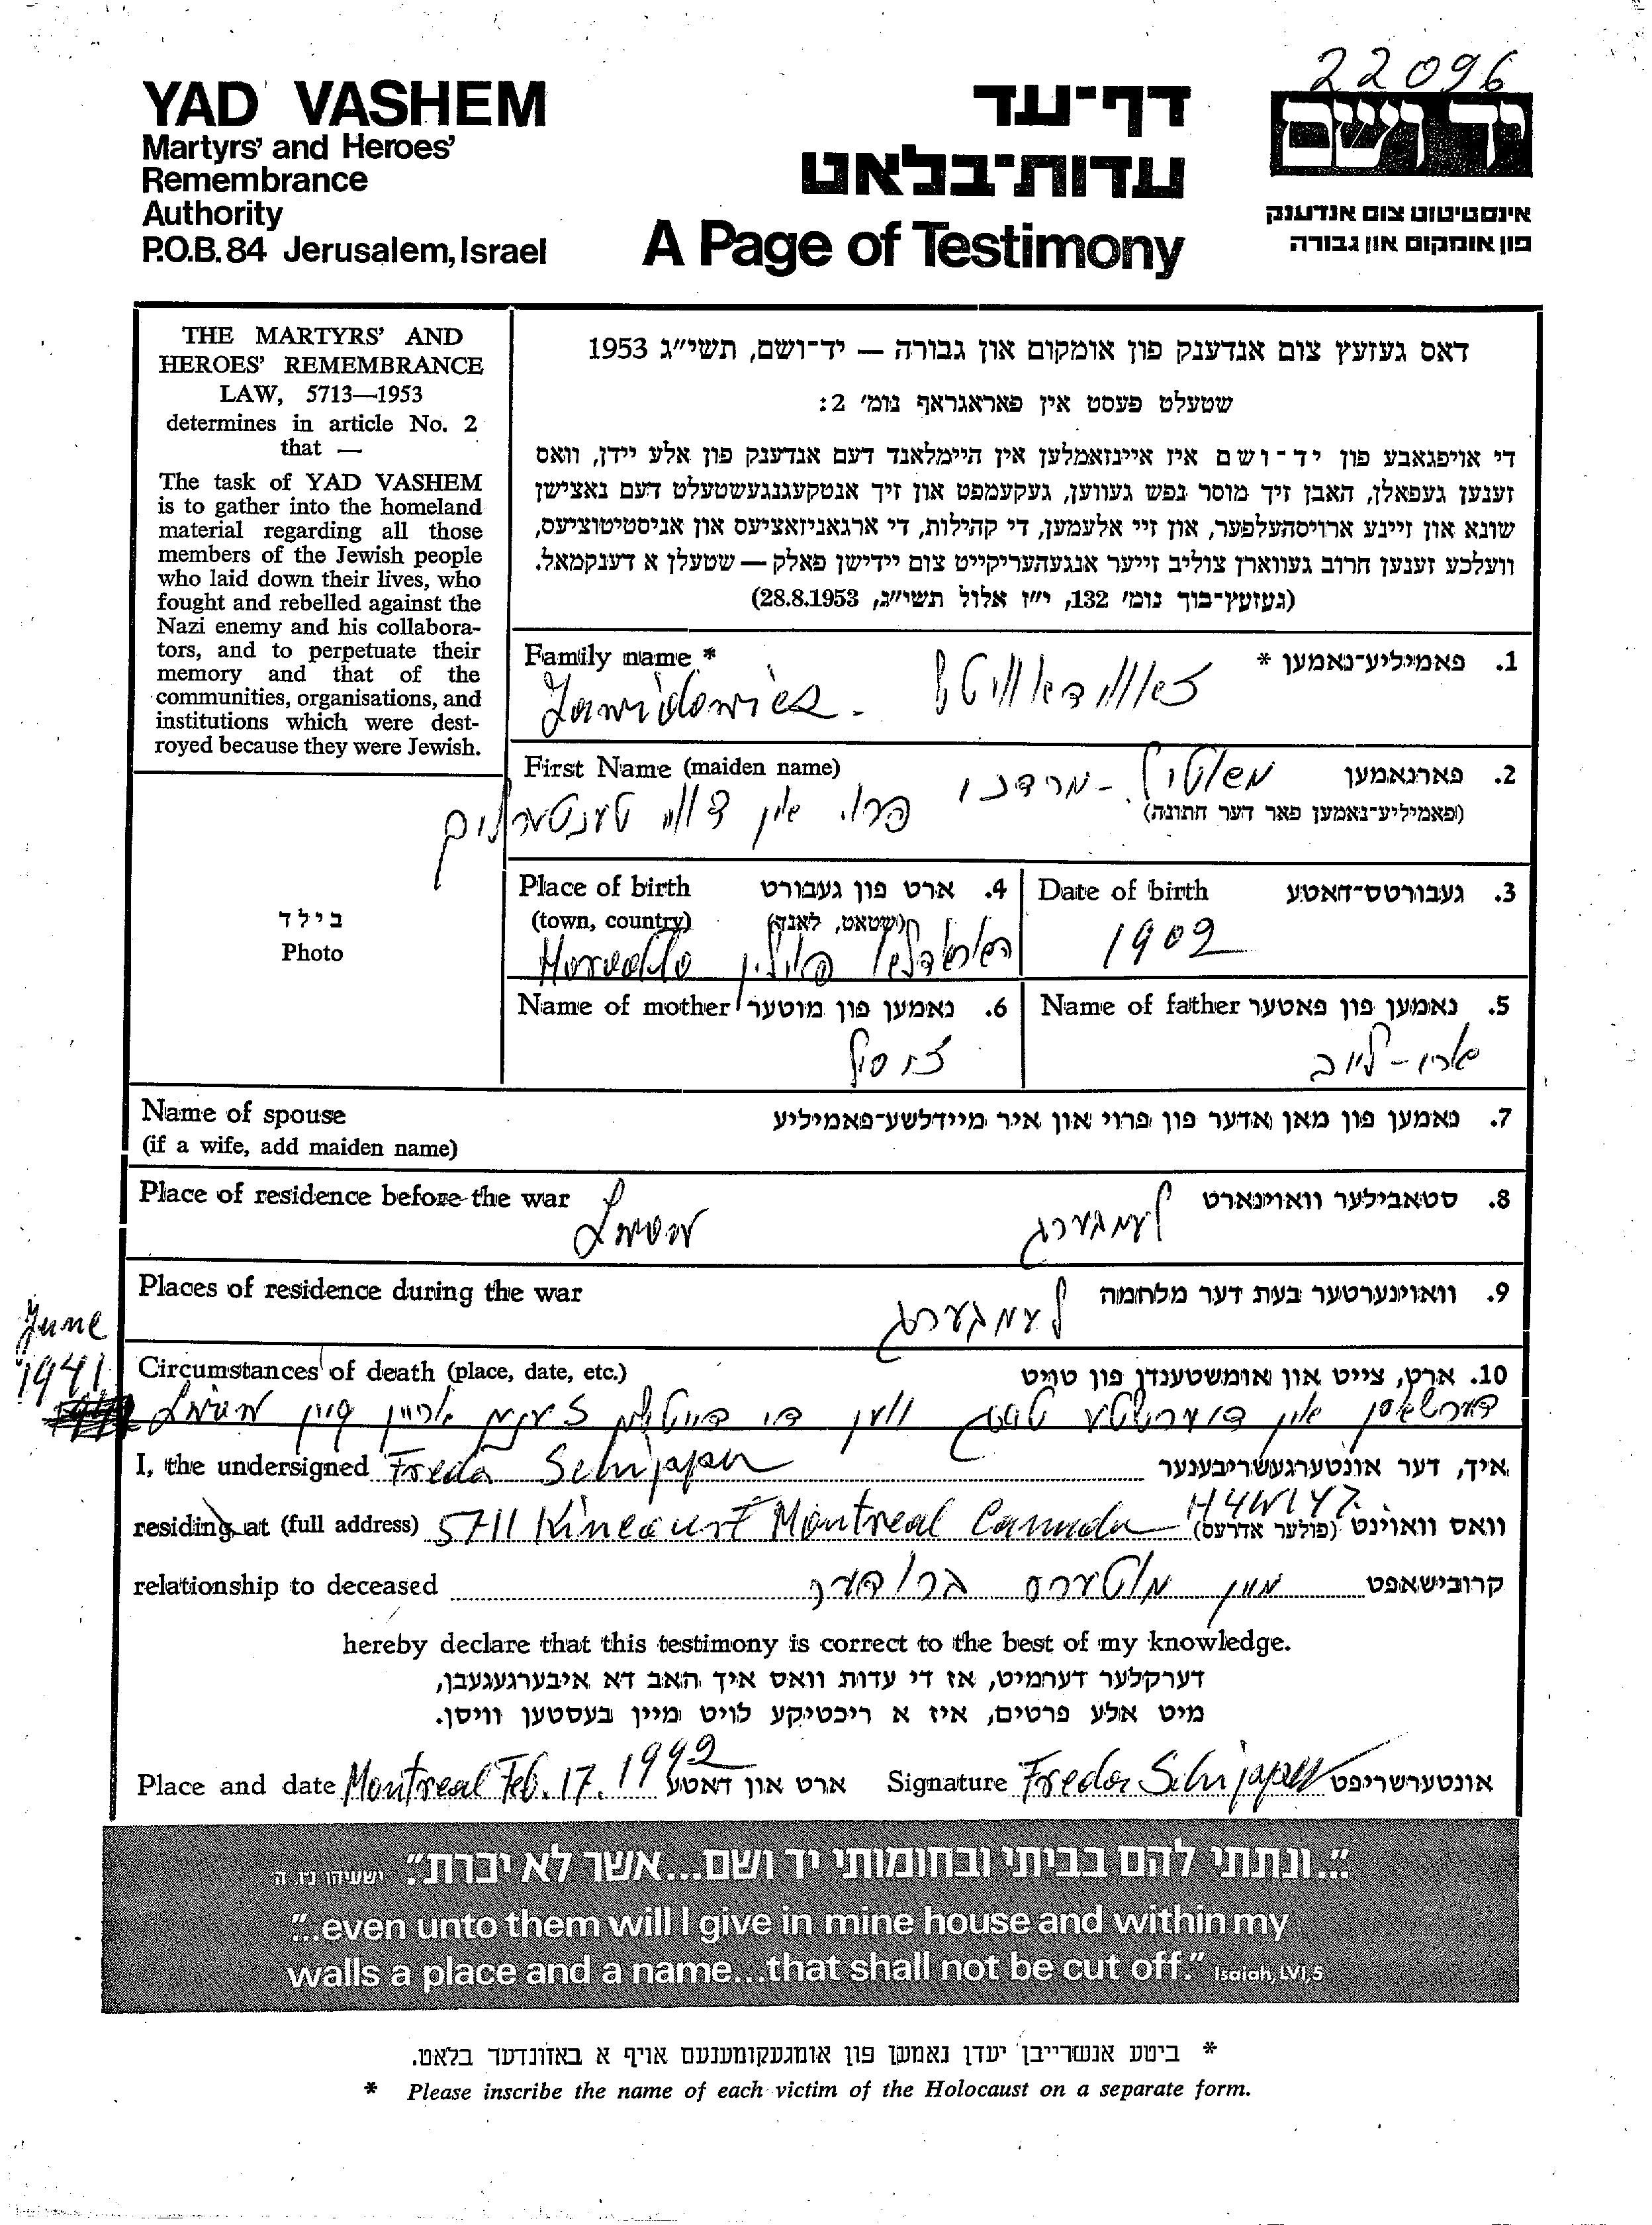 22096
YAD VASHEM
Martyrs' and Heroes'
Remembrance
Authority
P.O.B. 84 Jerusalem, Israel
דף-עד
עדות-בלאט
A Page of Testimony
יד ושם
אינסטיטוט צום אנדענק
פון אומקום און גבורה
THE MARTYRS' AND
HEROES' REMEMBRANCE
LAW, 5713—1953
determines in article No. 2
that —
The task of YAD VASHEM
is to gather into the homeland
material regarding all those
members of the Jewish people
who laid down their lives, who
fought and rebelled against the
Nazi enemy and his collabora-
tors, and to perpetuate their
memory and that of the
communities, organisations, and
institutions which were dest-
royed because they were Jewish.
דאס געזעץ צום אנדענק פון אומקום און גבורה — יד-ושם, תשי״ג 1953
שטעלט פעסט אין פאראגראף נומ׳ 2:
די אויפגאבע פון יד-ושם איז איינזאמלען אין היימלאנד דעם אנדענק פון אלע יידן, וואס
זענען געפאלן, האבן זיך מוסר נפש געווען, געקעמפט און זיך אנטקעגנגעשטעלט דעם נאצישן
שונא און זיינע ארויסהעלפער, און זיי אלעמען, די קהילות, די ארגאניזאציעס און אניסטיטוציעס,
וועלכע זענען חרוב געווארן צוליב זייער אנגעהעריקייט צום יידישן פאלק — שטעלן א דענקמאל.
(געזעץ-בוך נומ׳ 132, י״ז אלול תשי״ג, 28.8.1953)
Family name *
1. פאמיליע-נאמען *
Zawidowicz - זאווידאוויטש
First Name (maiden name)
2. פארנאמען
(פאמיליע-נאמען פאר דער חתונה)
פרוי אין
בילד
Photo
Place of birth 4. ארט פון געבורט
(town, country) (שטאט, לאנד)
פוילין
Date of birth 3. געבורטס-דאטע
1902
Name of mother 6. נאמען פון מוטער
Name of father 5. נאמען פון פאטער
ארי-לייב
Name of spouse 7. נאמען פון מאן אדער פון פרוי און איר מיידלשע-פאמיליע
(if a wife, add maiden name)
Place of residence before the war 8. סטאבילער וואוינארט
Lwow לעמבערג
Places of residence during the war 9. וואוינערטער בעת דער מלחמה
לעמבערג
June
1941
Circumstances of death (place, date, etc.) 10. ארט, צייט און אומשטענדן פון טויט
דערשאסן אין די ערשטע טעג ווען די דייטשן זענען אריין קיין Lwow
I, the undersigned Freda Schipper איך, דער אונטערגעשריבענער
residing at (full address) 5711 Kincourt Montreal Canada H4W1Y7 וואס וואוינט (פולער אדרעס)
relationship to deceased מיין מוטערס ברודער קרובישאפט
hereby declare that this testimony is correct to the best of my knowledge.
דערקלער דערמיט, אז די עדות וואס איך האב דא איבערגעגעבן,
מיט אלע פרטים, איז א ריכטיקע לויט מיין בעסטען וויסן.
Place and date Montreal Feb. 17. 1992 ארט און דאטע Signature Freda Schipper אונטערשריפט
"..ונתתי להם בביתי ובחומותי יד ושם...אשר לא יכרת." ישעיהו נז. ה
"..even unto them will I give in mine house and within my
walls a place and a name...that shall not be cut off." Isaiah, LVI,5
* ביטע אנשרייבן יעדן נאמען פון אומגעקומענעם אויף א באזונדער בלאט.
* Please inscribe the name of each victim of the Holocaust on a separate form.